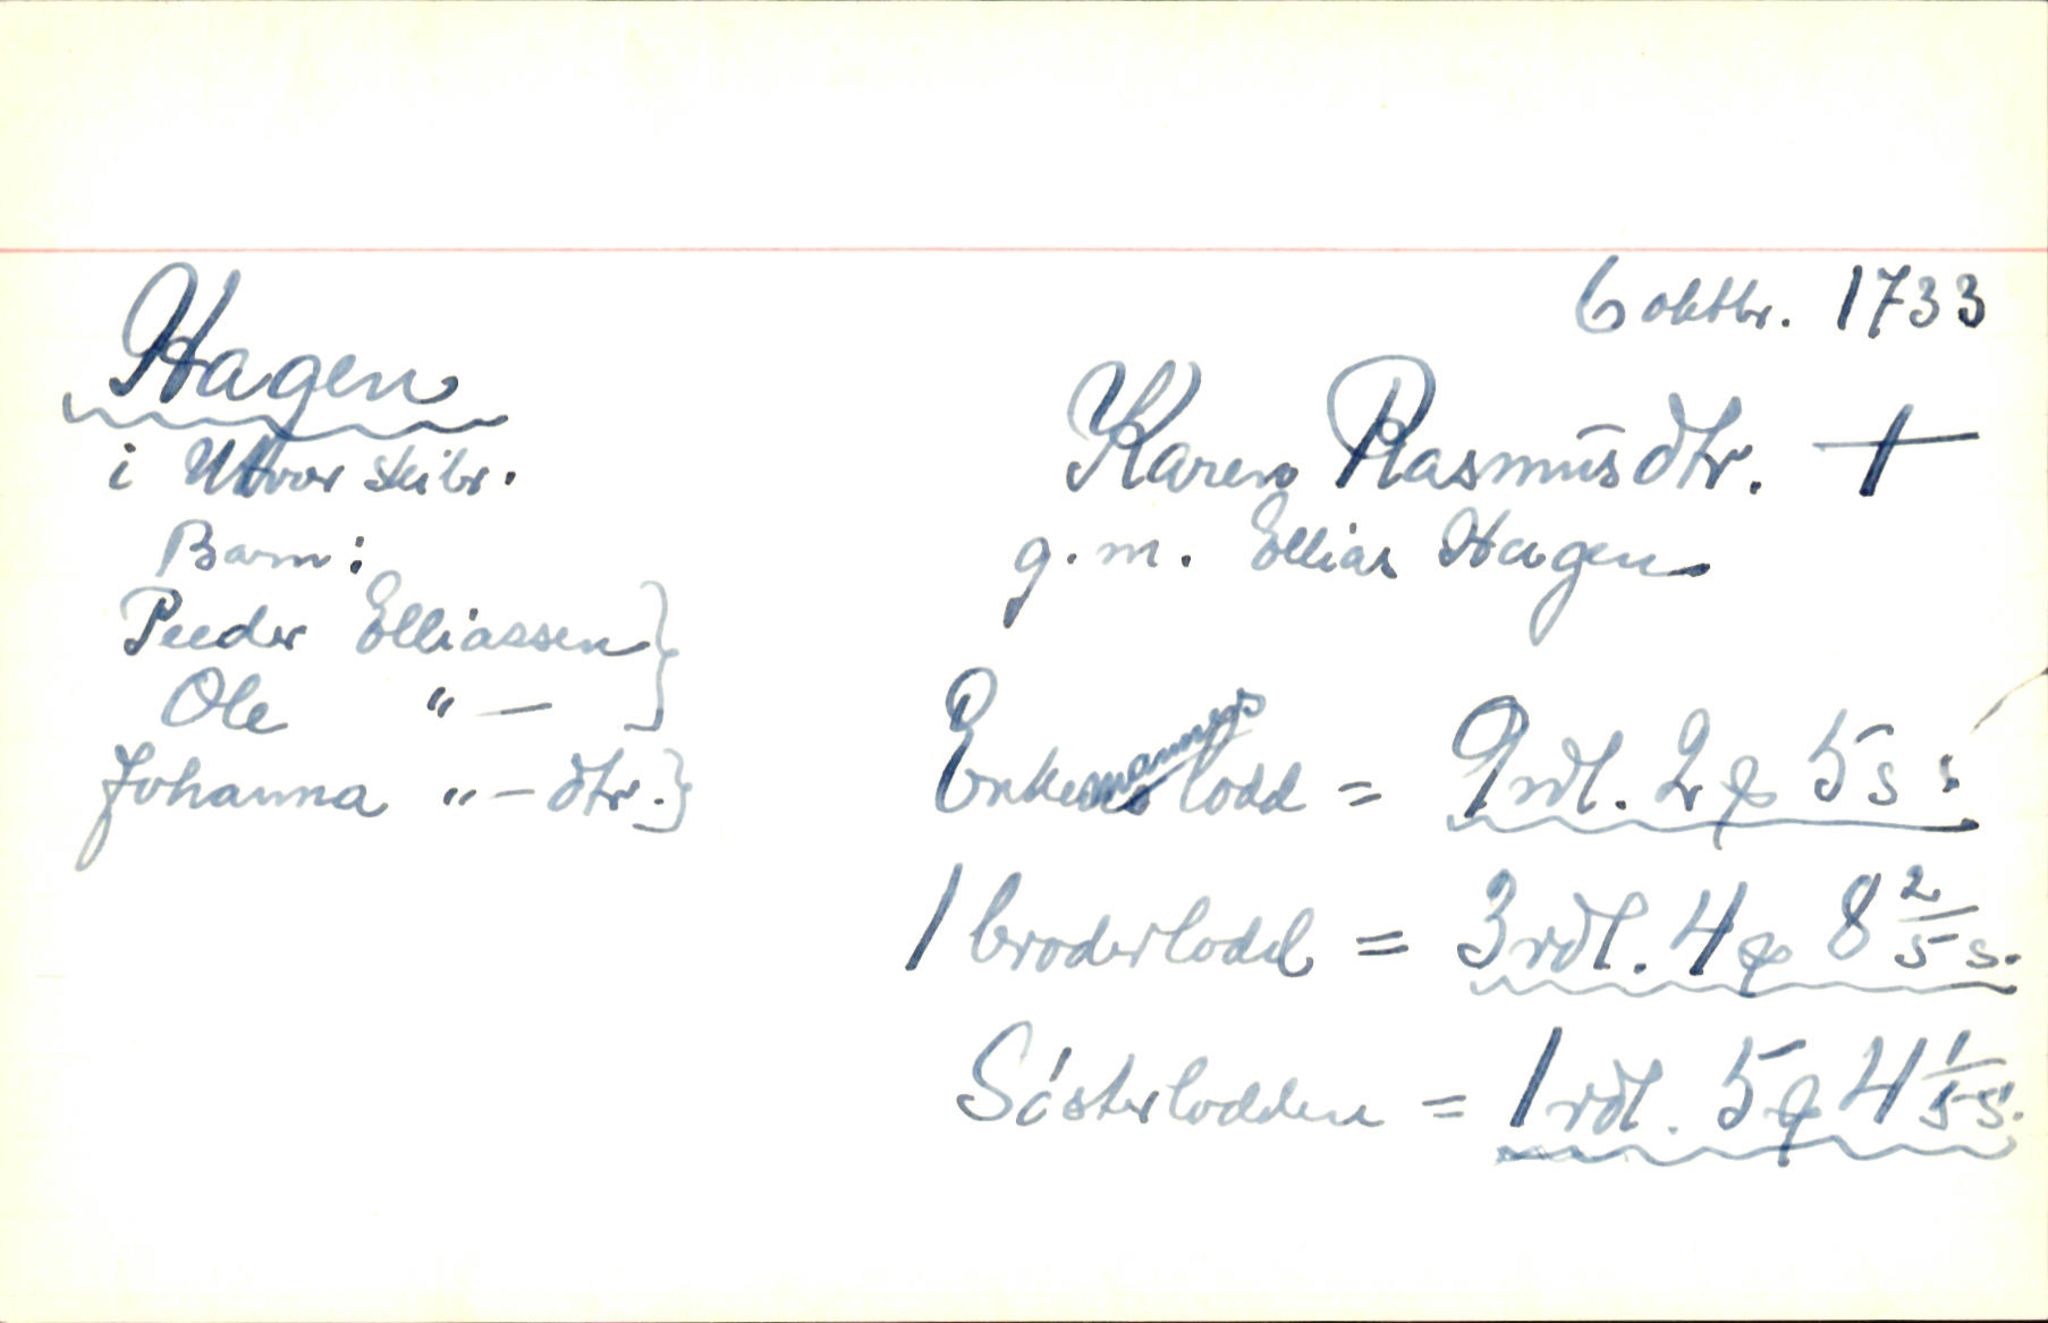 6 oktbr. 1733
Hagen
i Utvor skibr.
Barn:
Peeder Elliassen }
Ole " — }
Johanna " — dtr. }
Karen Rasmusdtr. †
g. m. Ellias Hagen
Enkemannens lodd = 9 rdl. 2 q 5 s.
1 broderlodd = 3 rdl. 4 q 8 2/5 s.
Sósterlodden = 1 rdl. 5 q 4 1/5 s.